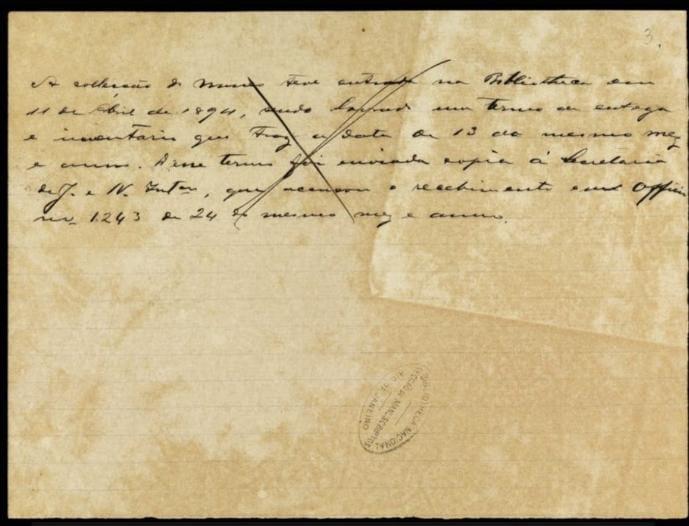 3.
A collecção do Museu teve entrada na Bibliotheca em
11 de Abril de 1894, sendo lavrado um termo de entrega
e inventario que traz a data de 13 do mesmo mez
e anno. Desse termo foi enviada copia á Secretaria
de J. e N. Inter.es, que accusou o recebimento em Officio
nº 1243 de 24 do mesmo mez e anno.
BIBLIOTHECA NACIONAL
SECÇÃO DE MANUSCRIPTOS
RIO DE JANEIRO